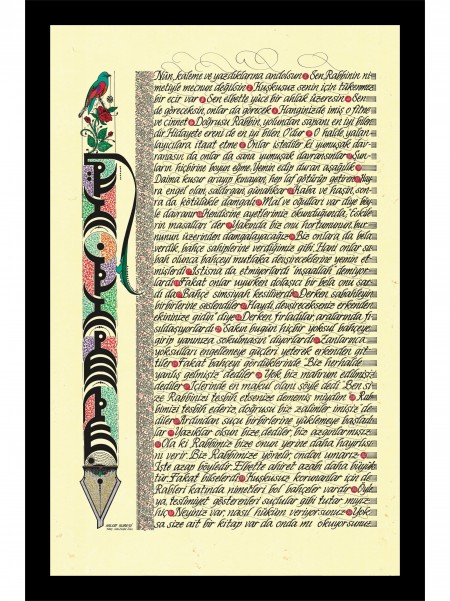 Nûn, kaleme ve yazdıklarına andolsun Sen Rabbinin ni
metiyle mecnun değilsin Kuşkusuz senin için tükenmez
bir ecir var Sen elbette yüce bir ahlak üzeresin Sen
de göreceksin, onlar da görecek Hanginizde imiş o fitne
ve cinnet Doğrusu Rabbin, yolundan sapanı en iyi bilen
dir. Hidayete ereni de en iyi bilen O'dur O halde, yalan
layıcılara itaat etme Onlar istediler ki yumuşak dav
ranasın da onlar da sana yumuşak davransınlar Şun
ların hiçbirine boyun eğme. Yemin edip duran aşağılık
Daima kusur arayıp kınayan, hep laf götürüp getiren Hay
ra engel olan, saldırgan, günahkar Kaba ve haşin, son
ra da kötülükle damgalı Mal ve oğulları var diye böy
le davranır Kendisine ayetlerimiz okunduğunda, "Eskile
rin masalları" der Yakında biz onu hortumunun, bur
nunun üzerinden damgalayacağız Biz onlara da bela
verdik, bahçe sahiplerine verdiğimiz gibi. Hani onlar sa
bah olunca bahçeyi mutlaka devşireceklerine yemin et
mişlerdi İstisna da etmiyorlardı inşaallah demiyor
lardı Fakat onlar uyurken dolaşıcı bir bela onu sar
dı da Bahçe simsiyah kesiliverdi Derken sabahleyin
birbirlerine seslendiler Haydi, devşirecekseniz erkenden
ekininize gidin" diye Derken fırladılar, aralarında fı
sıldaşıyorlardı Sakın bugün hiçbir yoksul bahçeye
girip yanınıza sokulmasın diyorlardı Zanlarınca
yoksulları engellemeye güçleri yeterek erkenden git
tiler Fakat bahçeyi gördüklerinde "Biz herhalde
yanlış gelmişiz" dediler Yok, biz mahrum edilmişiz
dediler İçlerinde en makul olanı şöyle dedi Ben si
ze Rabbinizi tesbih etsenize demedim miydim Rab
bimizi tesbih ederiz, doğrusu biz zalimler imişiz de
diler Ardından suçu birbirlerine yüklemeye başladı
lar Yazıklar olsun bize, dediler, biz azgınlarmışız
Ola ki Rabbimiz bize onun yerine daha hayırlısı
nı verir. Biz Rabbimize yönelir, ondan umarız
İşte azap böyledir. Elbette ahiret azabı daha büyük
tür. Fakat bilselerdi Kuşkusuz korunanlar için de
Rableri katında nimetleri bol bahçeler vardır Öyle
ya, teslimiyet gösterenleri suçlular gibi tutar mıyız
hiç Neyiniz var, nasıl hüküm veriyorsunuz Yok
sa size ait bir kitap var da onda mı okuyorsunuz